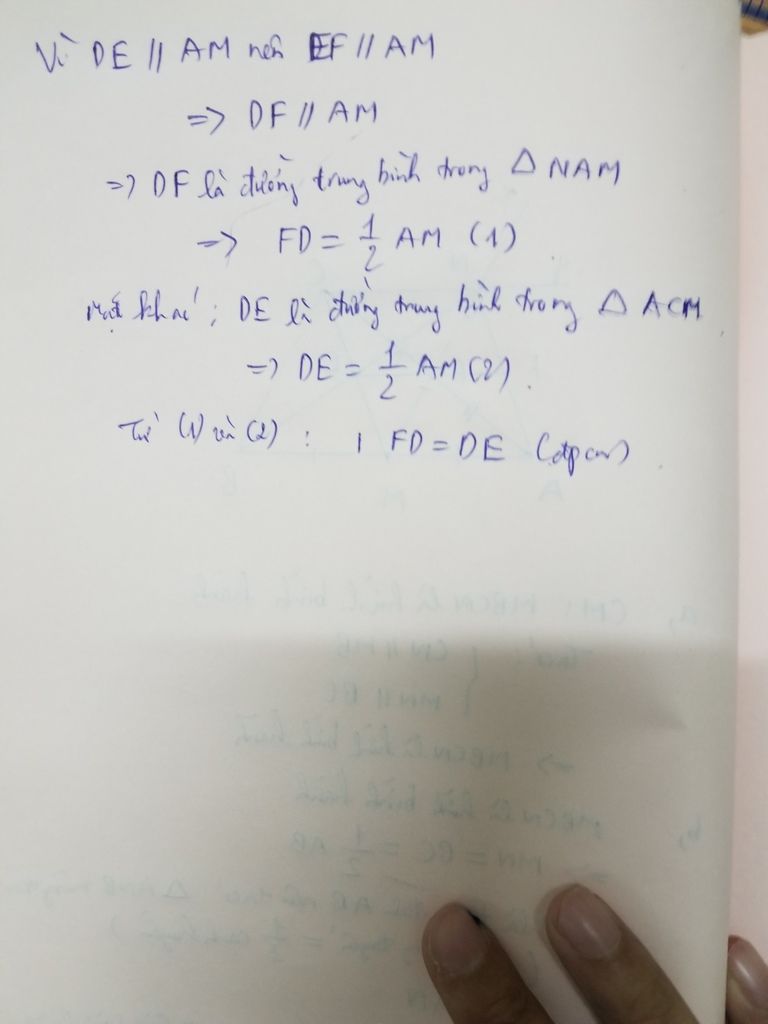 Vì DE // AM nên EF // AM
=> DF // AM
=> DF là đường trung bình trong △ NAM
=> FD = 1/2 AM (1)
mặt khác: DE là đường trung bình trong △ ACM
=> DE = 1/2 AM (2).
Từ (1) và (2) : FD = DE (đpcm)